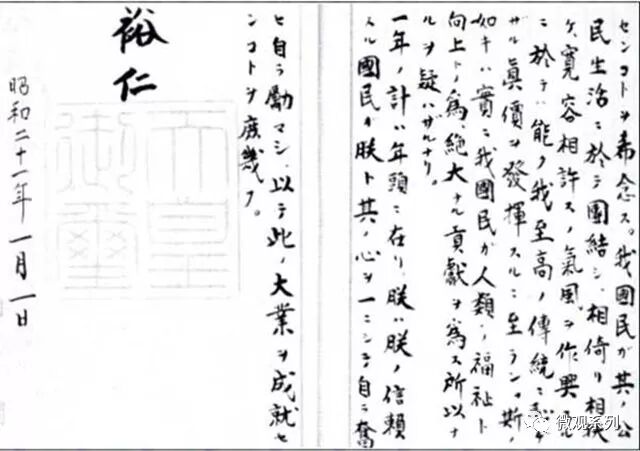 センコトヲ希念ス。我國民ガ其ノ公
民生活ニ於テ團結シ、相倚リ相扶
ケ、寛容相許スノ氣風ヲ作興スル
ニ於テハ能ク我至高ノ傳統ニ恥ヂ
ザル眞價ヲ發揮スルニ至ラン。斯ノ
如キハ實ニ我國民ガ人類ノ福祉ト
向上トノ為、絶大ナル貢獻ヲ為ス所以ナ
ルヲ疑ハザルナリ。
一年ノ計ハ年頭ニ在リ、朕ハ朕ノ信頼
スル國民ガ朕ト其ノ心ヲ一ニシテ自ラ奮
ヒ自ラ勵マシ、以テ此ノ大業ヲ成就セ
ンコトヲ庶幾フ。
裕仁
天皇
御璽
昭和二十一年一月一日
微观系列